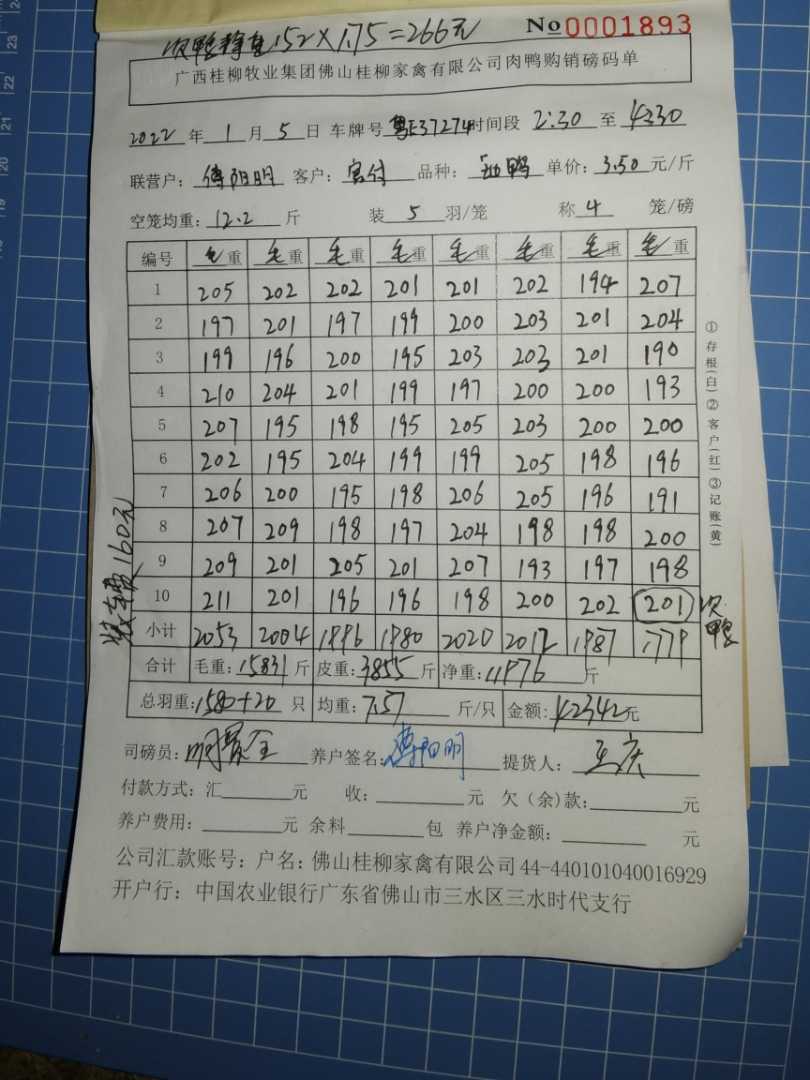 次鸭静重152×1.75=266元
No 0001893
广西桂柳牧业集团佛山桂柳家禽有限公司肉鸭购销磅码单
2022年1月5日 车牌号 粤E37274 时间段 2:30 至 4:30
联营户: 傅阳明 客户: 客户品种: 单价: 3.50元/斤
空笼均重: 12.2斤 装5羽/笼 称4笼/磅
编号 毛重 毛重 毛重 毛重 毛重 毛重 毛重 毛重
1 205 202 202 201 201 202 194 207
2 197 201 197 199 200 203 201 204
3 199 196 200 195 203 203 201 190
4 210 204 201 199 197 200 200 193
5 207 195 198 195 205 203 200 200
6 202 195 204 199 199 205 198 196
7 206 200 195 198 206 205 196 191
8 207 209 198 197 204 198 198 200
9 209 201 205 201 207 193 197 198
10 211 201 196 196 198 200 202 201 次鸭
小计 2053 2004 1996 1980 2020 2012 1987 1779
合计 毛重: 15831斤 皮重: 3855斤 净重: 11976斤
总羽重: 1580+20只 均重: 7.57斤/只 金额: 42342元
司磅员: 养户签名: 傅阳明 提货人: 王庆
付款方式: 汇 元 收: 元 欠(余)款: 元
养户费用: 元 余料 包 养户净金额: 元
公司汇款账号: 户名: 佛山桂柳家禽有限公司 44-440101040016929
开户行: 中国农业银行广东省佛山市三水区三水时代支行
装车费160元
①存根(白)②客户(红)③记账(黄)